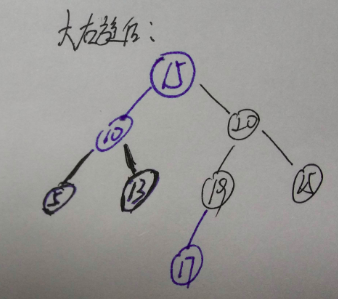 大右旋后：
15
10 20
5 13 19 25
17